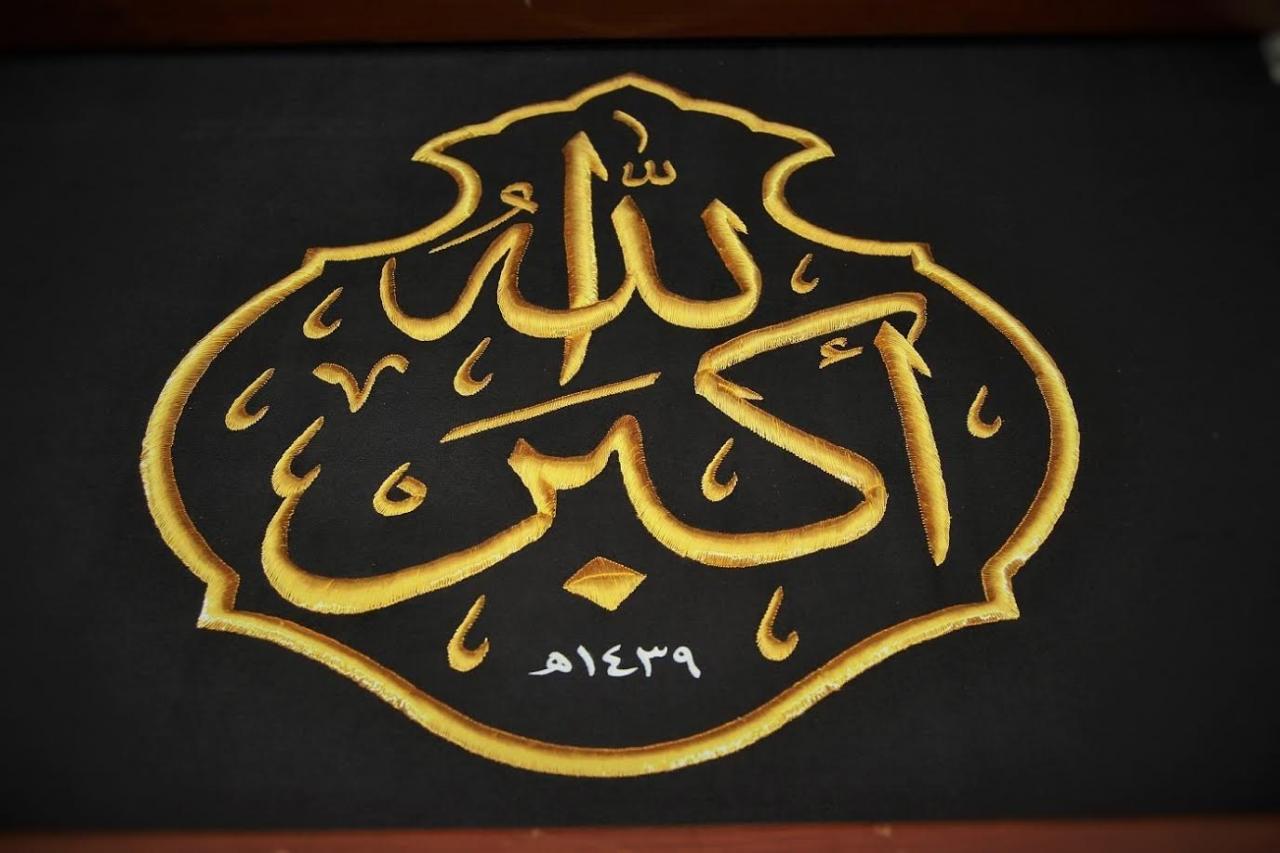 اللّٰهُ
أَكْبَر
١٤٣٩هـ